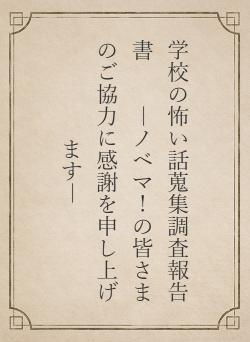 学校の怖い話蒐集調査報告
書　―ノベマ！の皆さま
のご協力に感謝を申し上げ
ます―